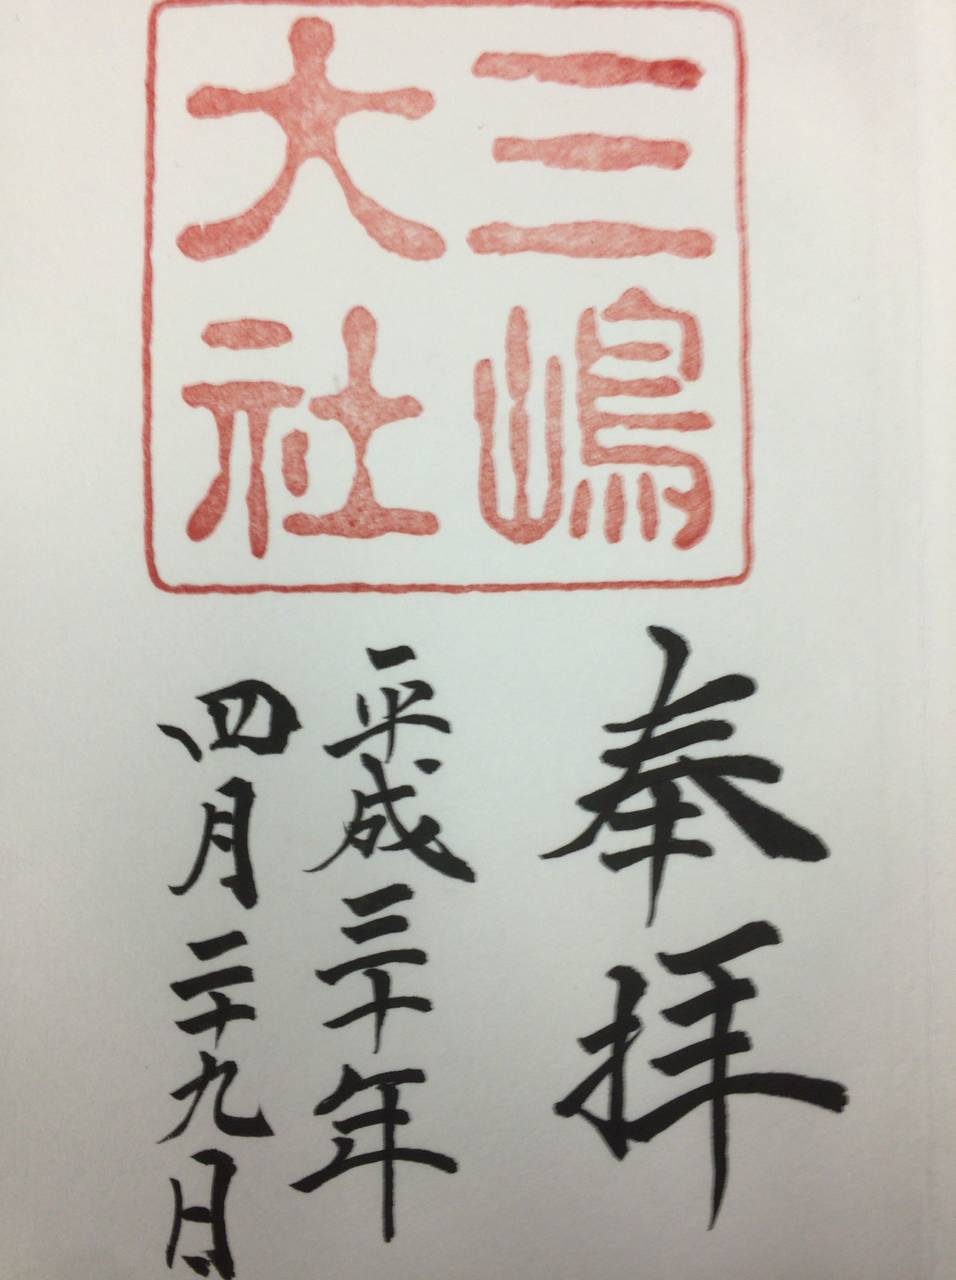 三嶋
大社
奉拝
平成三十年
四月二十九日